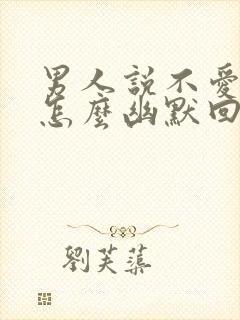 男人說不愛
怎麼幽默回
劉芙蕖